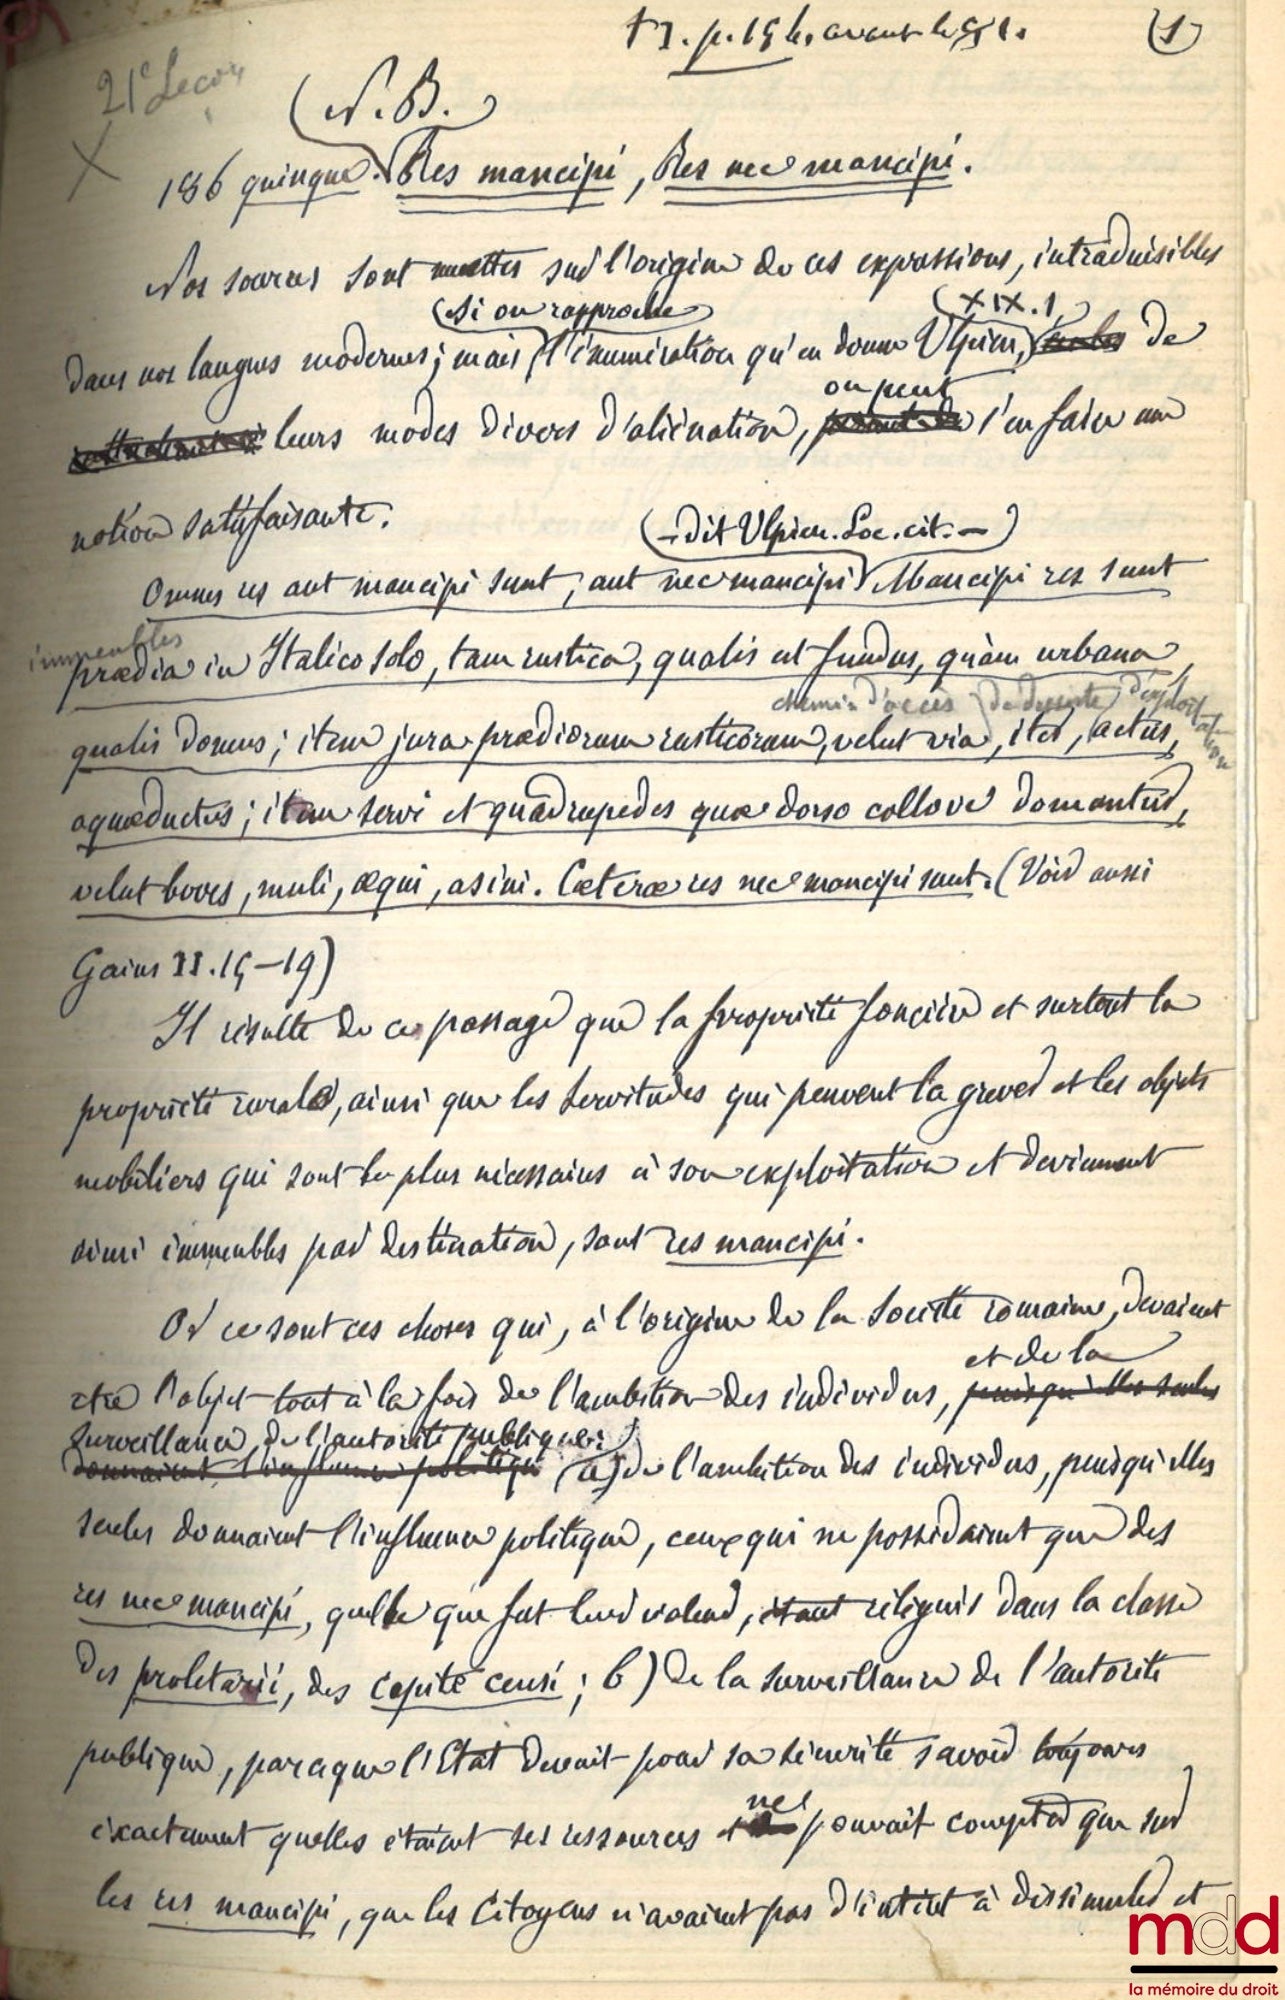 T I. p. 154. avant le § 1. (1)
21e Leçon
(N.B.)
186 quinque. Res mancipi, Res nec mancipi.
Nos sources sont muettes sur l'origine de ces expressions, intraduisibles
(si on rapproche (XIX.1)
dans nos langues modernes; mais l'énumération qu'en donne Ulpien, de
on peut
leurs modes divers d'aliénation, s'en faire une
notion satisfaisante.
(- dit Ulpien. Loc. cit. -)
Omnes res aut mancipi sunt, aut nec mancipi Mancipi res sunt
immeubles
prædia in Italico solo, tam rustica, qualis est fundus, quàm urbana,
chemin d'accès (de desserte) d'exploitation
qualis domus; item jura prædiorum rusticorum, velut via, iter, actus,
aquæductus; item servi et quadrupedes quæ dorso collove domantur,
velut boves, muli, æqui, asini. Cæteræ res nec mancipi sunt. (Voir aussi
Gaius II. 15-19)
Il résulte de ce passage que la propriété foncière et surtout la
propriété rurale, ainsi que les servitudes qui peuvent la grever et les objets
mobiliers qui sont les plus nécessaires à son exploitation et deviennent
ainsi immeubles par destination, sont res mancipi.
Or ce sont ces choses qui, à l'origine de la Société romaine, devaient
et de la
être l'objet tout à la fois de l'ambition des individus, puisqu'elles seules
surveillance, de l'autorité publique:
donnaient l'influence politique (a) de l'ambition des individus, puisqu'elles
seules donnaient l'influence politique, ceux qui ne possédaient que des
res nec mancipi, quelle que fut leur valeur, étant relégués dans la classe
des proletarii, des capite censi; b) de la surveillance de l'autorité
publique, parceque l'Etat devait pour sa sécurité savoir toujours
ne
exactement quelles étaient ses ressources et pouvait compter que sur
les res mancipi, que les Citoyens n'avaient pas d'intérêt à dissimuler et
mdd
la mémoire du droit